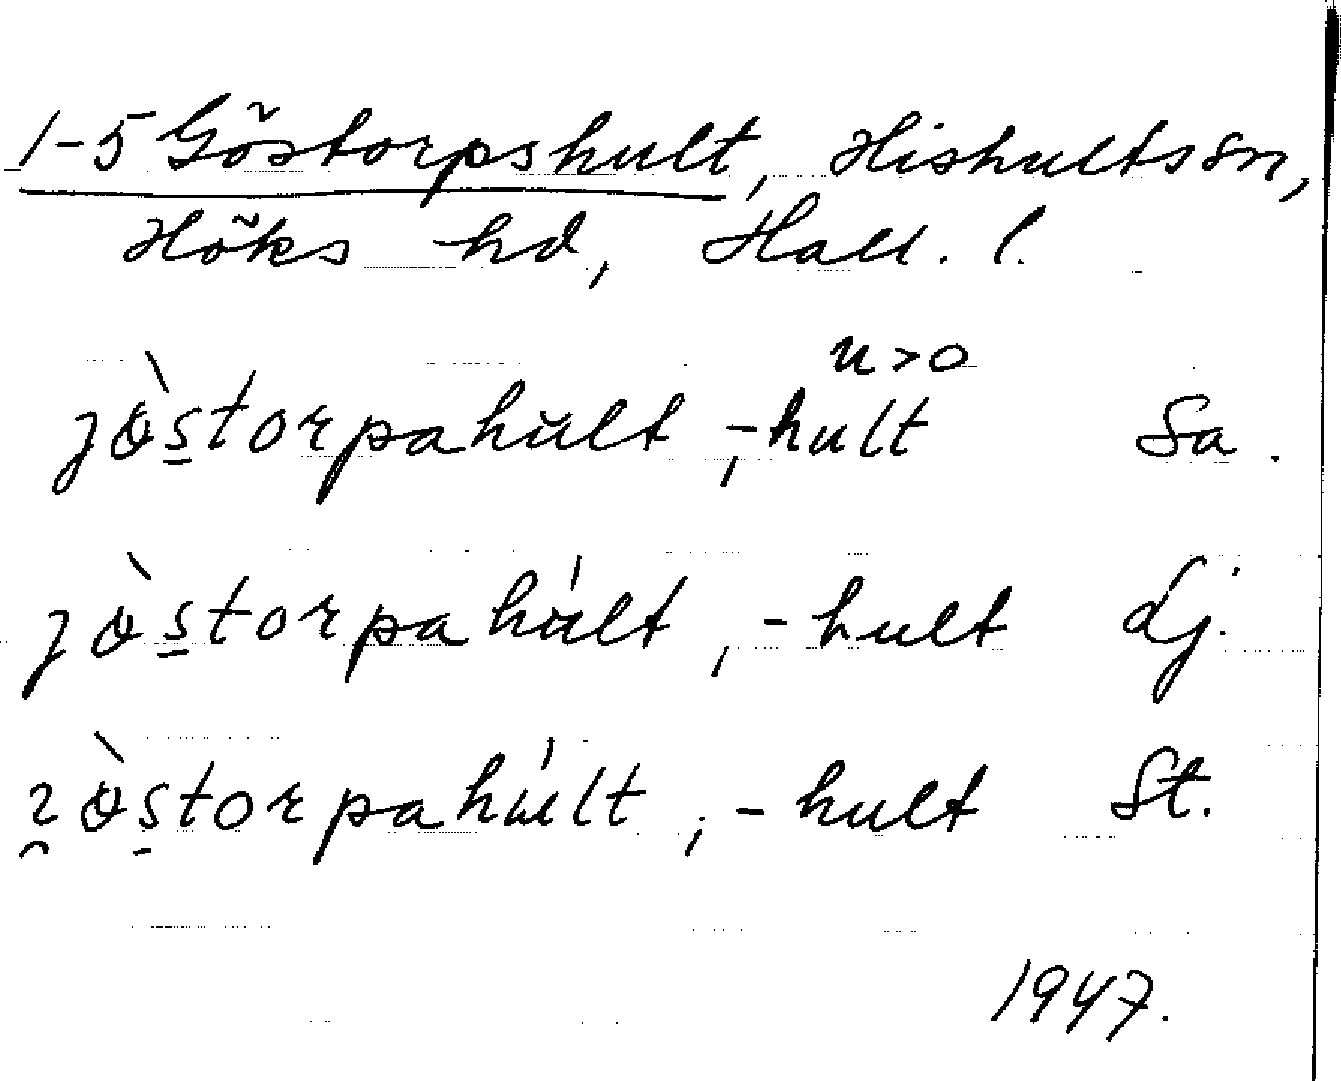 1-5 Göstorpshult, Hishults sn,
Höks hd, Hall. l.
u>o
jò̵s̠torpahult, -hult Sa.
jò̵s̠torpahúlt, -hult Lj.
ɀ̯ò̵s̠torpahúlt, -hult St.
1947.